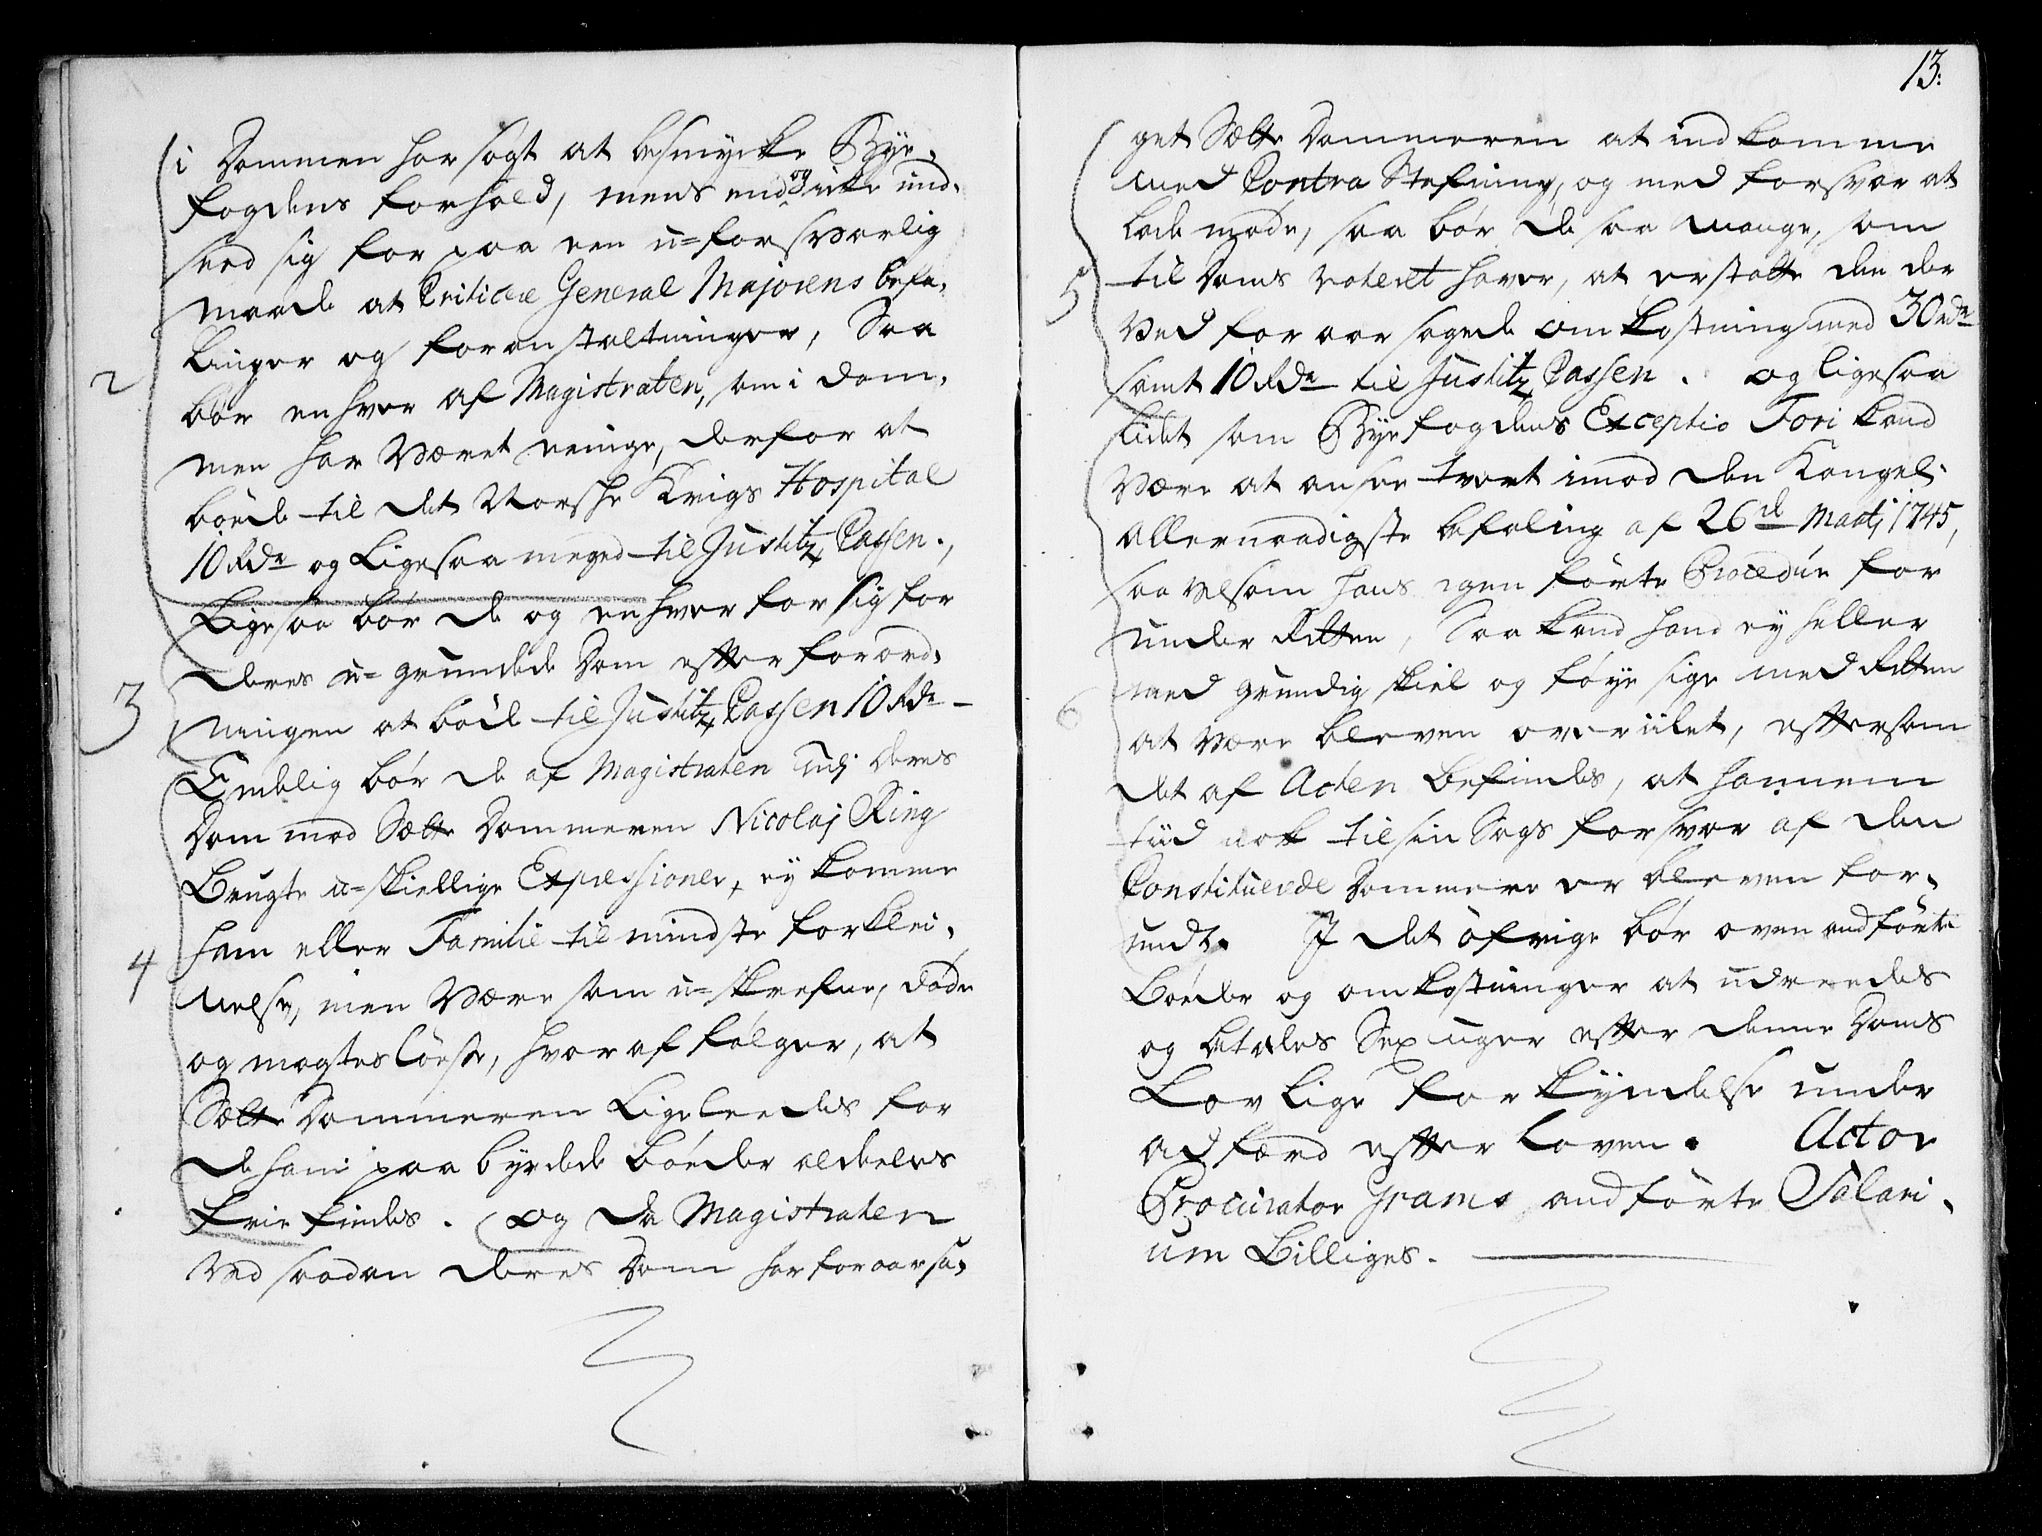 i Dommen har søgt at besmÿcke Bÿe,
fogdens forhold, mens end og icke und,
seed sig for paa een u=forsvarlig
maade at Criticere General Majorens befa,
linger og foranstaltninger, Saa
2
bør enhver af Magistraten, som i dom,
men har været eenige, derfor at
bøde til det Norske Krigs Hospital
10 Rdr og Ligesaa meged til Justitz Cassen.,
Ligesaa bør de og enhver for sig for
deres u=grundede Dom efter forord,
3
ningen at bøde til Justitz Cassen 10 Rdr -
Endelig bør de af Magistraten udj deres
Dom mod Sætte Dommeren Nicolaj Ring
Brugte u=skiellige Expressioner, eÿ komme
ham eller Familie til mindste forklei,
4
nelse, men være som u=skrefne, døde
og magtesløese, hvoraf følger, at
Sætte Dommeren Ligeleedes for
de ham paabÿrdede bøeder aldeeles
frie findes. og da Magistraten
ved saadan deres Dom har foraarsa,
13:
get Sætte Dommeren at indkomme
med Contra Stefning, og med forsvar at
lade møde, saa bør de saa mange, som
5
til Doms voteret haver, at erstatte den der
ved foraarsagede omkostning med 30 rdr
samt 10 Rdr til Justitz Cassen. og ligesaa
lidet som Bÿefogdens Exceptio Fori kand
være at ansee tvert imod den Kongel:
allernaadigste befaling af 26de Martj 1745,
saavelsom hans egen førte Procedure for
under Retten, Saa kand hand eÿ heller
med grundig skiel og føÿe sige med Retten
6
at være bleven overiilet, eftersom
det af Acten befindes, at hannem
tiid nok til sin Sags forsvar af den
Constituerede Dommere er bleven for,
undt. I det øfrige bør ovenandførte
Bøeder og omkostninger at udreedes
og betales Sex uger efter denne Doms
Lovlige forkÿndelse under
adfærd efter Loven. Actor
Procurator Grams andførte Salari,
um Billiges.